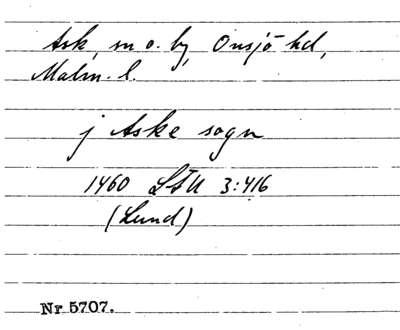 Ask, sn o. by, Onsjö hd,
Malm. l.
j Aske sogn
1460 LÄU 3:416
(Lund)
Nr 5707.